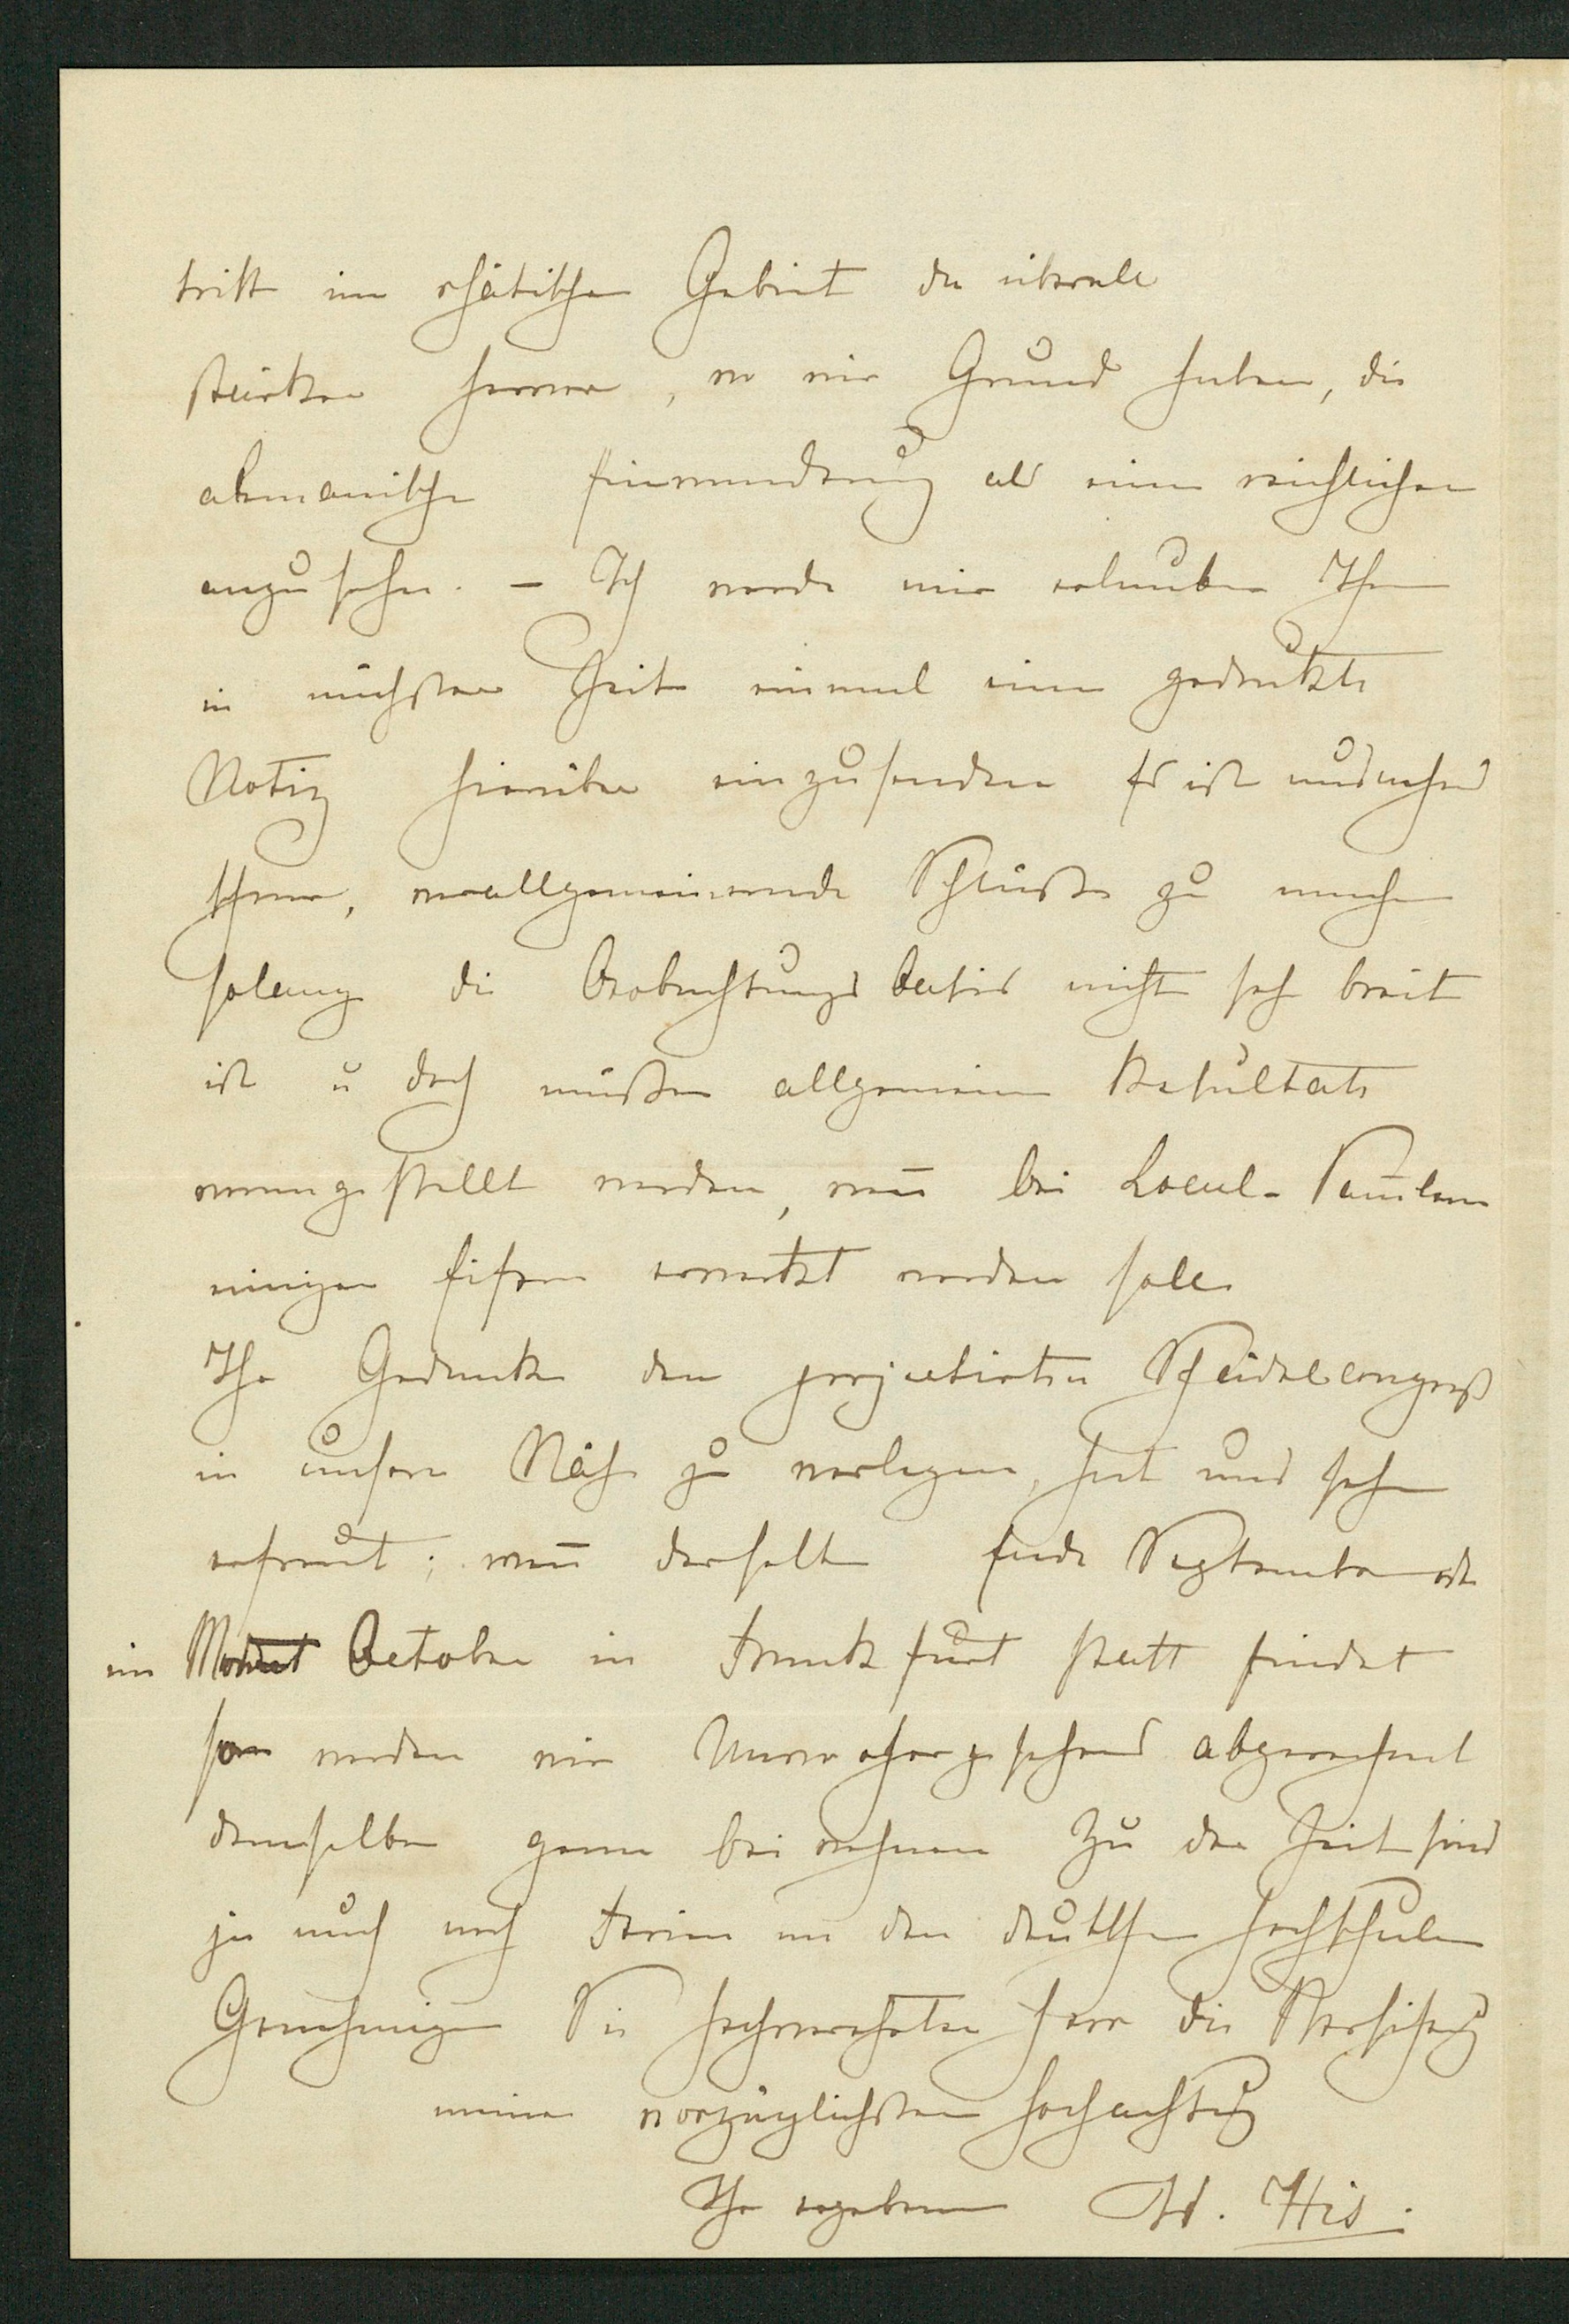 tritt im rhätischen Gebiet da überall
stärker hervor, wo wir Grund haben, die
alemanische Einwanderung als eine reichliche
anzusehen. – Ich werde mir erlauben Ihnen
in nächster Zeit einmal eine gedruckte
Notiz hierüber einzusenden Es ist
schwer, verallgemeinernde Schlüsse zu machen
solange die Beobachtungsbasis nicht sehr breit
ist u doch müssen allgemeine Resultate
vorangestellt werden, weñ bei Local-Sam̃lern
einiger Eifer erweckt werden soll.
Ihr Gedanke den projectirten Schädelcongress
in unsere Nähe zu verlegen, hat uns sehr
erfreut; weñ derselbe Ende September od.
im Monat October in Frankfurt statt findet
so werden wir Unvorhergesehenes abgerechnet
demselben gerne beiwohnen Zu der Zeit sind
ja auch noch Ferien an den deutschen Hochschulen
Genehmigen Sie hochverehrter Herr die Versicherung
meiner vorzüglichsten Hochachtung
Ihr ergebener W. His.